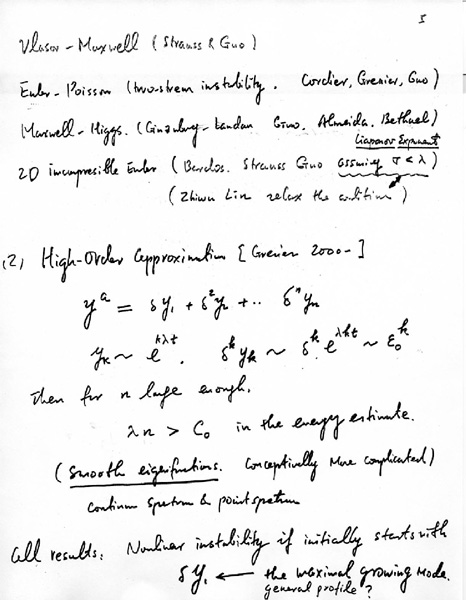 5
Vlasov-Maxwell (Strauss & Guo)
Euler-Poisson (two-stream instability. Cordier, Grenier, Guo)
Maxwell-Higgs. (Ginzburg-Landau Guo. Almeida. Bethuel)
Liapunov Exponent
2D incompressible Euler (Bardos. Strauss Guo assuming σ < λ)
(Zhiwu Lin relax the condition)
(2) High-Order Approximation [Grenier 2000-]
y^a = δy_1 + δ^2 y_2 + .. δ^n y_n
y_k ~ e^{kλt}. δ^k y_k ~ δ^k e^{λkt} ~ ε_0^k
Then for n large enough,
λn > C_0 in the energy estimate.
(Smooth eigenfunctions. Conceptively More complicated)
continuum spectrum & point spectrum
All results: Nonlinear instability if initially starts with
δy_1 ← the maximal growing mode.
general profile?